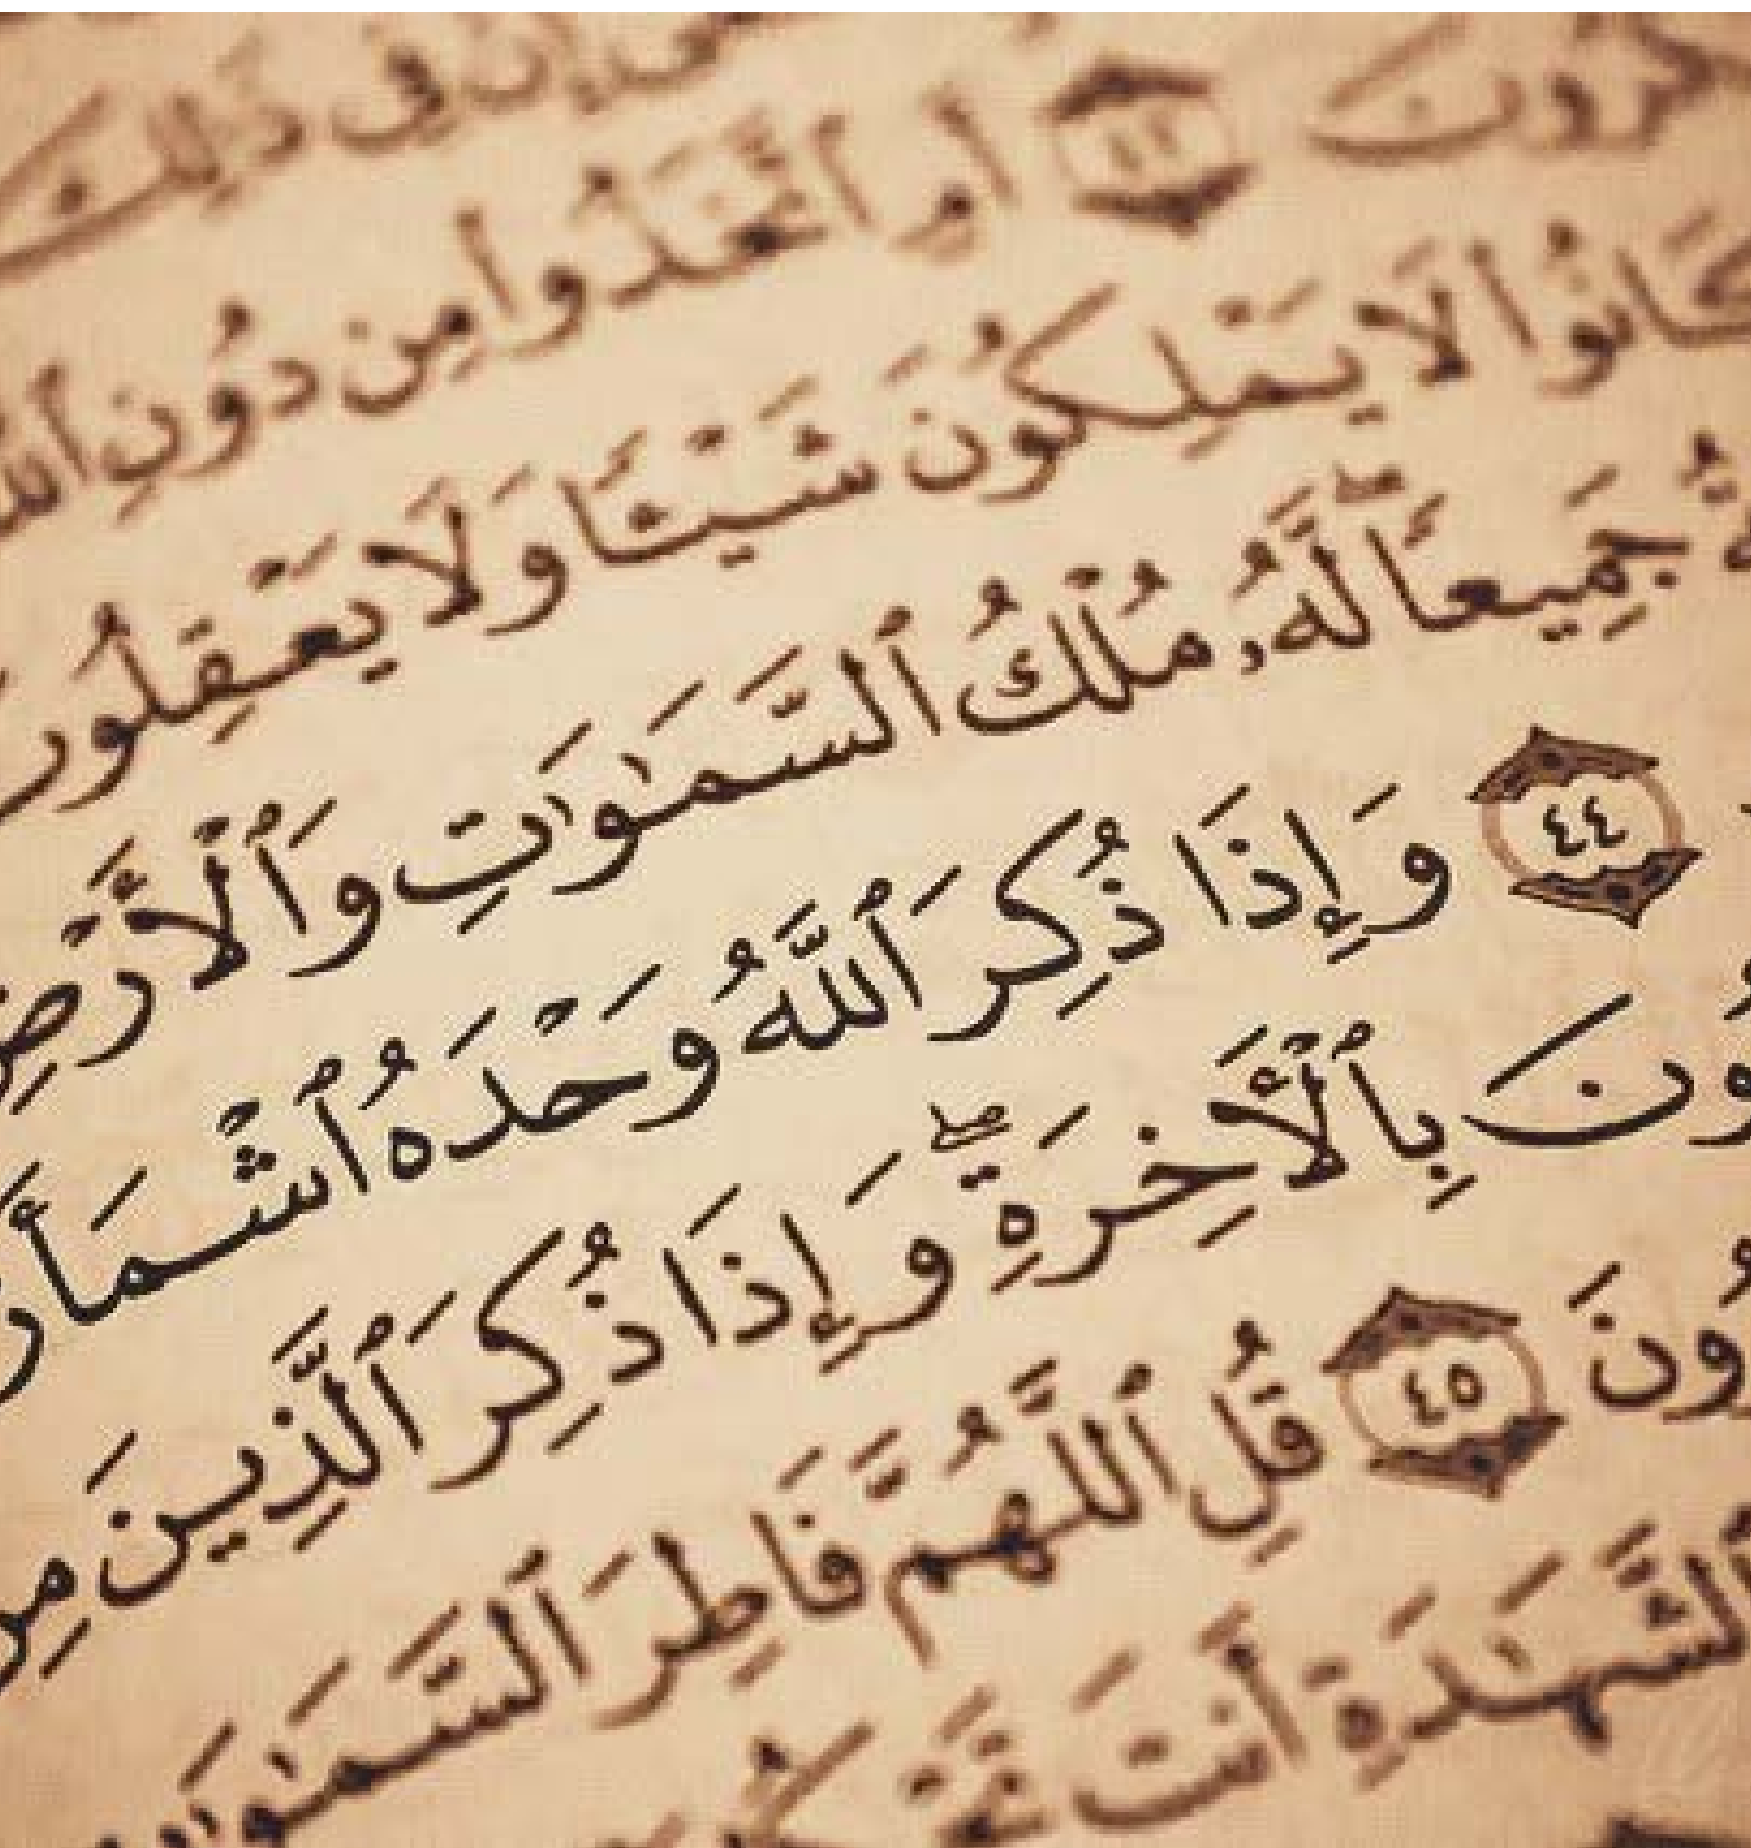 إِنَّ فِى ذَٰلِكَ
كَّرُونَ ٤٢ أَمِ ٱتَّخَذُوا۟ مِن دُونِ ٱللَّه
كَانُوا۟ لَا يَمْلِكُونَ شَيْـًٔا وَلَا يَعْقِلُون
جَمِيعًا ۖ لَّهُۥ مُلْكُ ٱلسَّمَٰوَٰتِ وَٱلْأَرْضِ
٤٤ وَإِذَا ذُكِرَ ٱللَّهُ وَحْدَهُ ٱشْمَأَز
ونَ بِٱلْأَخِرَةِ ۖ وَإِذَا ذُكِرَ ٱلَّذِينَ مِن
ونَ ٤٥ قُلِ ٱللَّهُمَّ فَاطِرَ ٱلسَّمَٰوَٰت
ٱلشَّهَٰدَةِ أَنتَ تَحْكُ